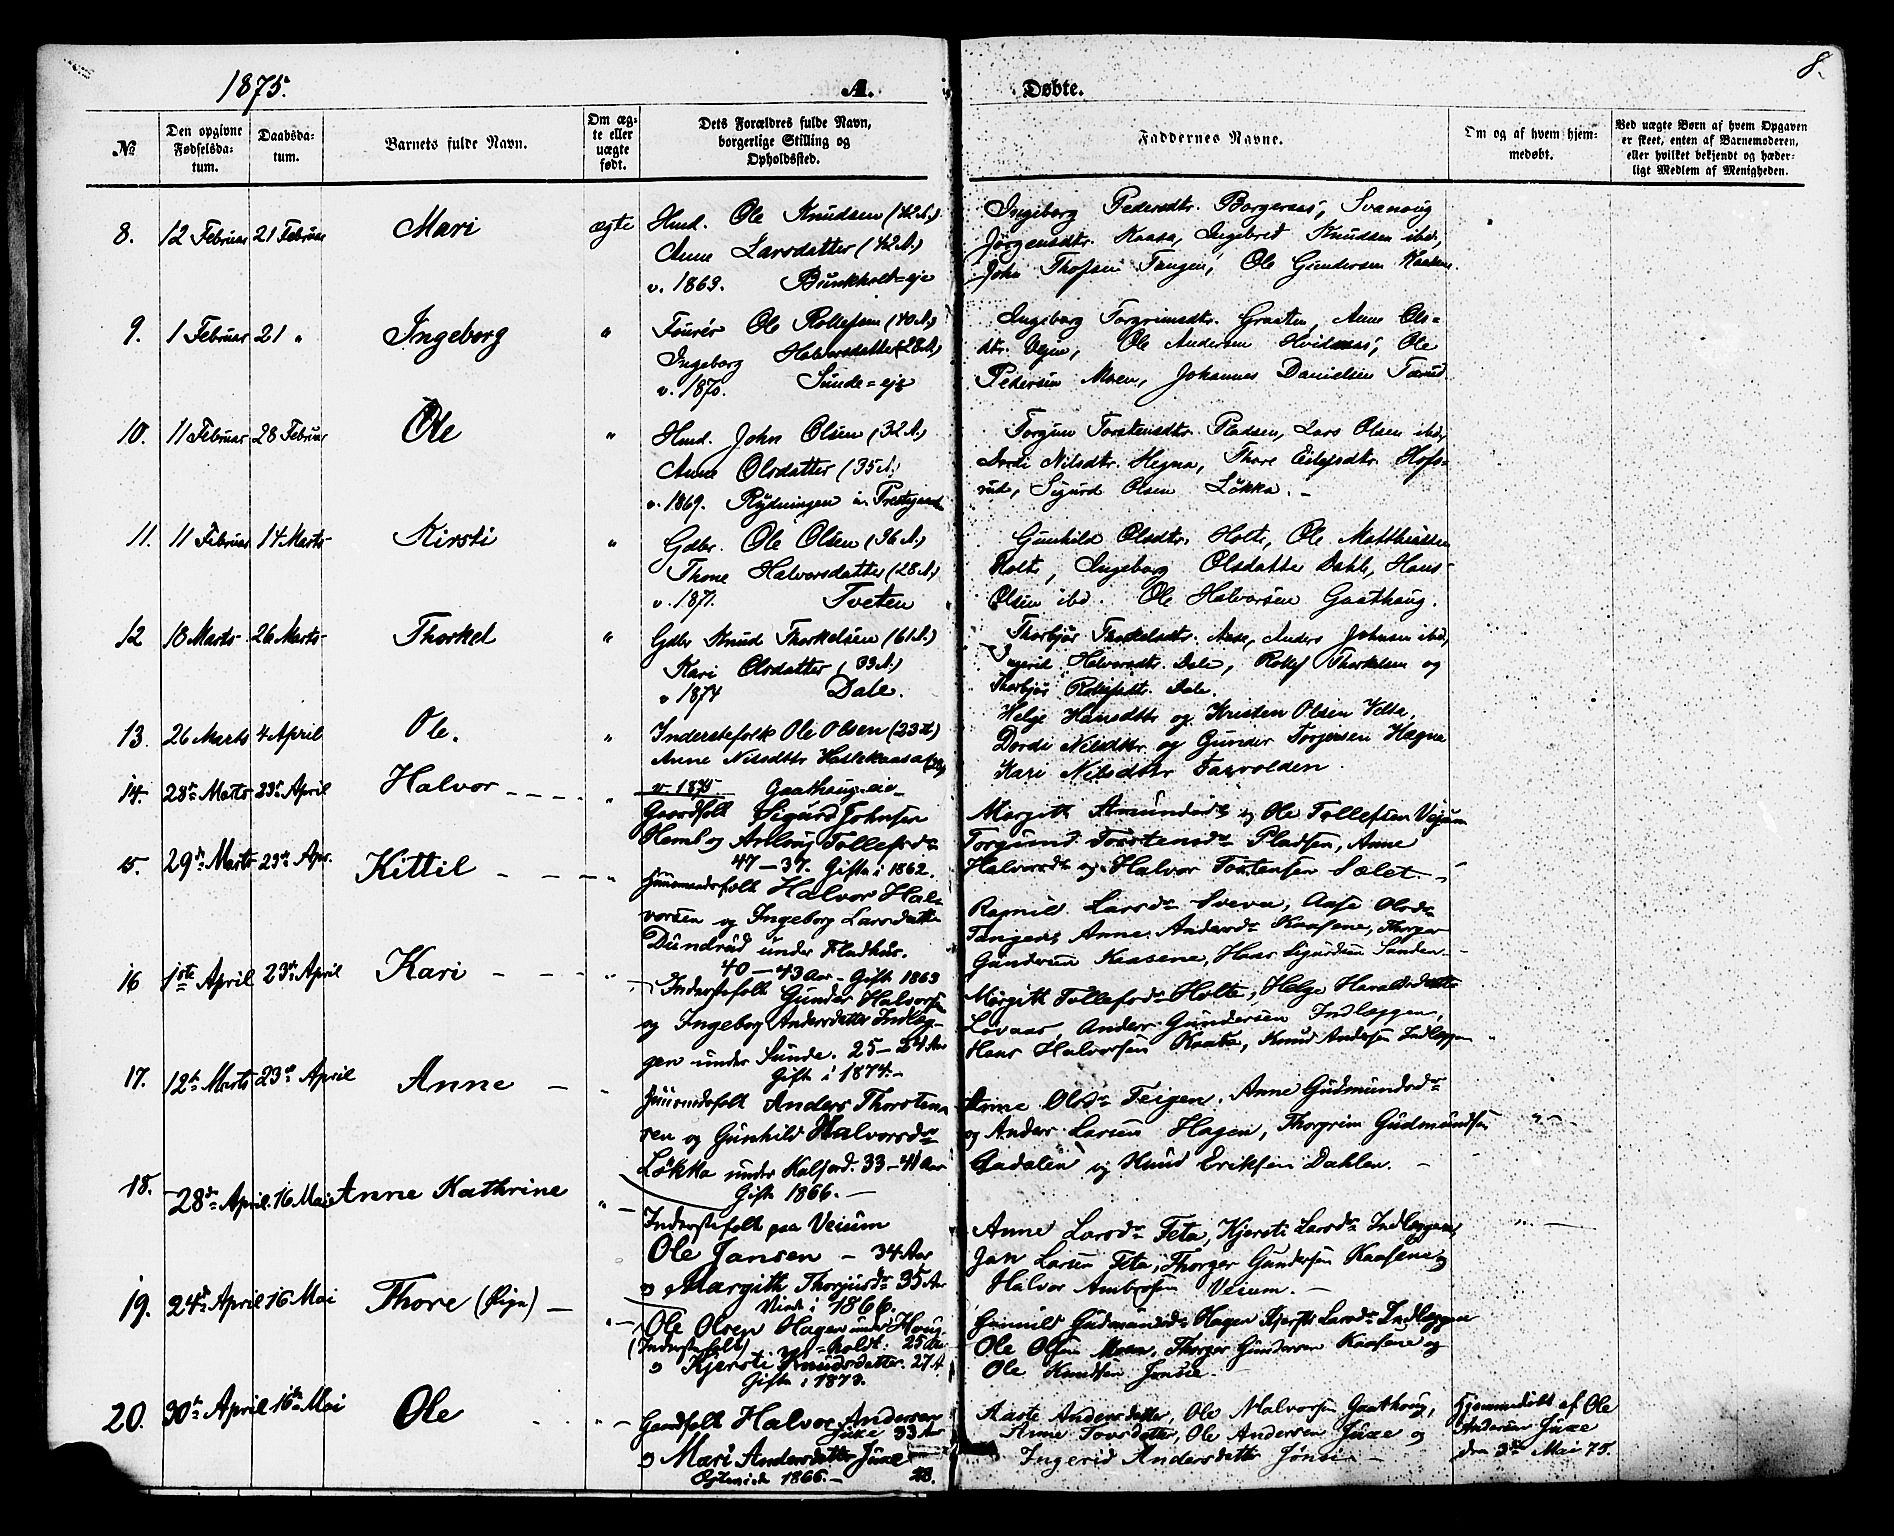 1875.
A.
Døbte.
8.
№
Den opgivne Fødselsdatum.
Daabsdatum.
Barnets fulde Navn.
Om ægte eller uægte født.
Dets Forældres fulde Navn, borgerlige Stilling og Opholdsted.
Faddernes Navne.
Om og af hvem hjemmedøbt.
Ved uægte Børn af hvem Opgaven er skeet, enten af Barnemoderen, eller hvilket bekjendt og hæderligt Medlem af Menigheden.
8. 12 Februar 21 Februar Mari ægte
Husd. Ole Knudsen (42 A.)
Anne Larsdatter (42 A.)
v. 1863. Bunkholt=eje
Ingeborg Pedersdtr. Borgersaas, Svanaug
Jørgensdtr. Kaasa, Ingebret Knudsen ibd.,
John Thofsen Tangen, Ole Gundersen Kaasene.
9. 1 Februar 21 " Ingeborg "
Ole Rollefsen (40 A.)
Ingeborg Halvorsdatter (28 A.)
v. 1870. Sunde=eje
Ingeborg Torgrimsdtr. Graaten, Anne Ols=
dtr. Ole Andersen Hvidesaas, Ole
Pedersen Moen, Johannes Danielsen
10. 11 Februar 28 Februar Ole "
Husd. John Olsen (32 A.)
Anne Olsdatter (35 A.)
v. 1869. Rydningen u. Prestegaard
Torgun Torstensdtr. Pladsen, Lars Olsen ibd,
Dordi Nilsdtr. Hegna, Thore Eilefsdtr. Hofs=
rud, Sigurd Olsen Løkka. -
11. 11 Februar 14 Marts Kirsti "
Gdbr. Ole Olsen (36 A.)
Thone Halvorsdatter (28 A.)
v. 1871. Tveten
Gunhild Olsdtr. Holte, Ole Matthiasen
Holte, Ingeborg Olsdatter Dahle, Hans
Olsen ibd. Ole Halvorsen Gaathaug.
12 10 Marts 26 Marts Thorkel "
Gdbr Knud Thorkelsen (61 A.)
Kari Olsdatter (33 A.)
v 1874 Dale.
Thorbjør Thorkelsdtr. Aase, Anders Johnsen ibd,
Ingerid Halvorsdtr. Dale, Rollef Thorkelsen og
Thorbjør Rollefsdtr. Dale.
13. 26 Marts 4 April Ole. "
Inderstefolk Ole Olsen (23 A)
Anne Nilsdttr
v. 1875 Gaathaug eie
Helje Hansdttr og Kristen Olsen
Dordi Nilsdttr og Gunder Torgersen Hægna
Kari Nilsdttr Farvolden
14. 28de Marts 23de April Halvor "
Gaardfolk Sigurd Johnsen
Hemb og Aslaug Tollefsdr
47 - 37. Gifte i 1862.
Margith Amundsdr og Ole Tollefsen Veium
Torgund Torstensdr Pladsen, Anne
Halvorsdr og Halvor Tostensen Sælet
15. 29de Marts 23de Apr. Kittil
Huusmandsfolk Halvor Hal=
vorsen og Ingeborg Larsdatter
Dundrud under Fladhus.
40 - 43 Aar - Gifte 1863
Ragnild Larsdr Sveva, Aase Olsdr
Tangen, Anne Andersdr Kaasene, Thorger
Gundersen Kaasene, Hans Sigurdsen Sanden
16 1ste April 23de April Kari
Inderstefolk Gunder Halvorsen
og Ingeborg Andersdatter Indleg=
gen under Sunde. 25 - 24 Aar
Gifte i 1874. -
Margith Tollefsdr Holte, Helge Haraldsdatter
Lovaas, Anders Gundersen Indleggen,
Hans Halvorsen Kaasa, Knud Andersen Indleggen
17. 12te Marts 23de April Anne
Huusmandsfolk Anders Thorsten=
sen og Gunhild Halvorsdr
Løkka under Kalfjord. 33 - 41 Aar
Gifte 1866. -
Anne Olsdr Teigen. Anne Gudmundsdr
og Anders Larsen Hagen, Thorgrim Gudmundsen
Aadalen og Knud Eriksen Dahlen.
18. 28de April. 16 Mai Anne Kathrine
Inderstefolk paa Veium
Ole Jansen - 34 Aar
og Margith Thorjusdr 35 Aar
Viede i 1866.
Anne Larsdr Feta, Kjersti Larsdr Indleggen,
Jan Larsen Feta, Thorger Gundersen Kaasene og
Halvor Ambrosen Veium. -
19. 24de April 16 Mai Thore (Pige)
Ole Olsen Hagen under Haug=
(Inderstefolk) holdt. 25 Aar
og Kjersti Knudsdatter. 27 A
Gifte i 1873.
Gunnild Gudmundsdr Hagen Kjersti Larsdr Indleggen
Ole Olsen Moen, Thorger Gundersen Kaasene og
Ole Knudsen Jønsie.
20. 30te April 16de Mai Ole
Gaardfolk Halvor Andersen
Juxe 33 Aar
og Mari Andersdatter Juxe
1866. - 28.
Aaste Andersdatter, Ole Halvorsen Gaathaug,
Anne Tovsdatter, Ole Andersen Juxe og
Ingerid Andersdatter Jønsi -
Hjemmedøbt af Ole
Andersen Juxe
den 3de Mai 75.